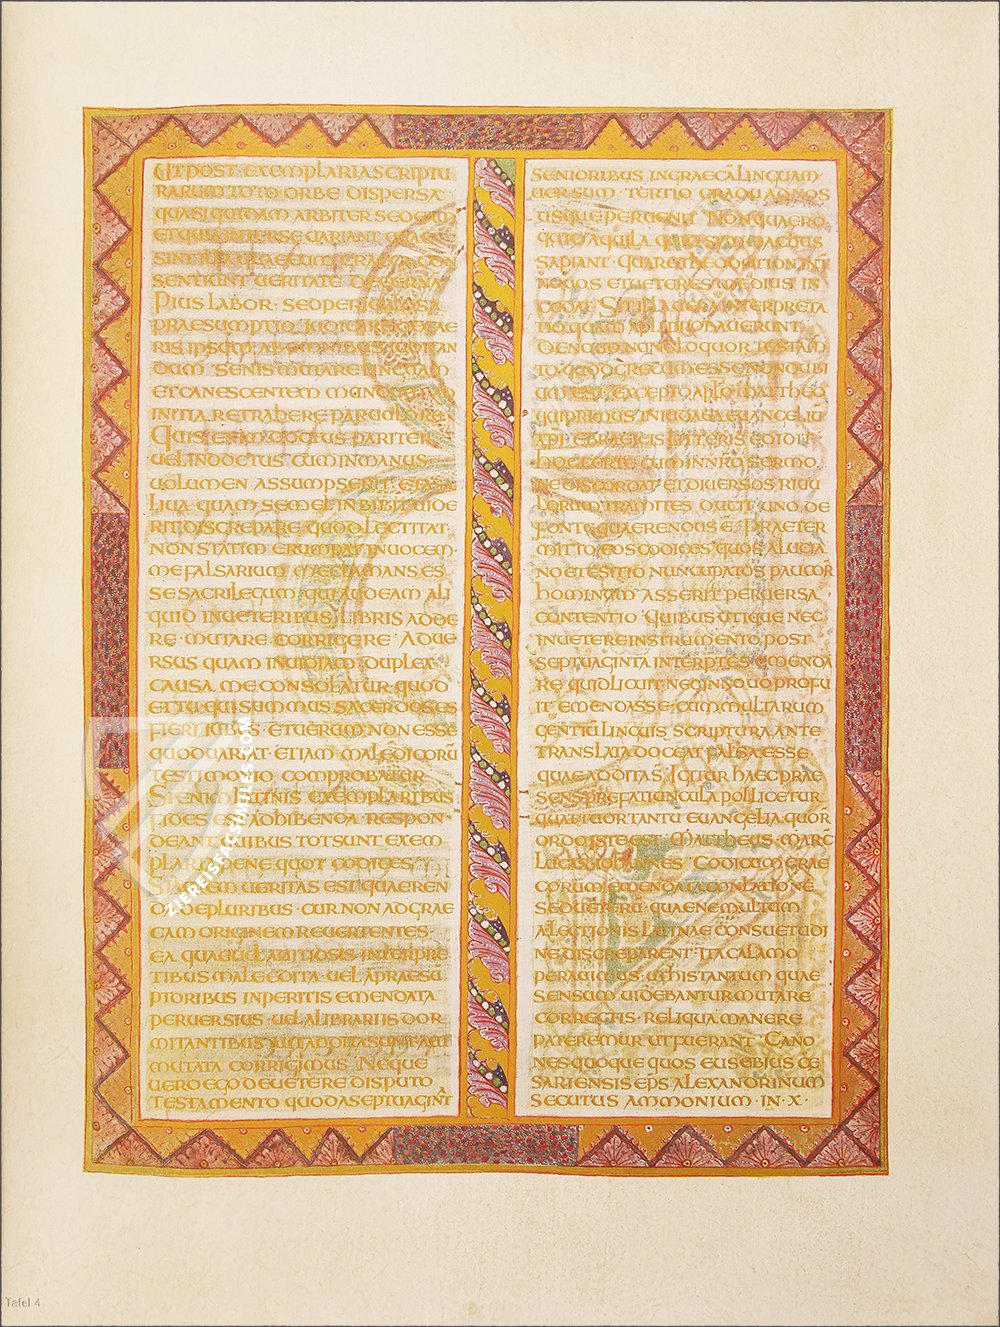 UT POST EXEMPLARIA SCRIPTU
RARUM TOTO ORBE DISPERSA
QUASI QUIDAM ARBITER SEDEAM
ET QUIA INTER SE VARIANT QUAE
SINT ILLA QUAE CUM GRAECA CON
SENTIUNT UERITATE DECERNA
PIUS LABOR · SED PERICULOSA
PRAESUMPTIO IUDICARE DE CAE
RIS IPSUM AB OMNIBUS IUDICAN
DUM · SENIS MUTARE LINGUAM
ET CANESCENTEM MUNDUM AD
INITIA RETRAHERE PARVULORE
QUIS ENIM DOCTUS PARITER
UEL INDOCTUS CUM IN MANUS
UOLUMEN ASSUMPSERIT ET A SA
LIUA QUAM SEMEL INBIBIT UIDE
RIT DISCREPARE QUOD LECTITAT·
NON STATIM ERUMPAT IN UOCEM·
ME FALSARIUM ME CLAMANS ES
SE SACRILEGUM · QUI AUDEAM ALI
QUID IN UETERIBUS LIBRIS ADDE
RE · MUTARE CORRIGERE · ADUE
RSUS QUAM INUIDIAM DUPLEX
CAUSA ME CONSOLATUR QUOD
ET TU QUI SUMMUS SACERDOS ES
FIERI IUBES · ET UERUM NON ESSE
QUOD UARIAT · ETIAM MALEDICORŪ
TESTIMONIO COMPROBATUR
SI ENIM LATINIS EXEMPLARIBUS
FIDES EST ADHIBENDA · RESPON
DEANT QUIBUS TOT SUNT EXEM
PLARIA PENE QUOT CODICES
SIN AUTEM UERITAS EST QUAEREN
DA DE PLURIBUS · CUR NON AD GRAE
CAM ORIGINEM REUERTENTES·
EA QUAE UEL A UITIOSIS INTERPRE
TIBUS MALE EDITA · UEL A PRAESU
PTORIBUS INPERITIS EMENDATA
PERUERSIUS · UEL A LIBRARIIS DOR
MITANTIBUS AUT ADDITA SUNT AUT
MUTATA CORRIGIMUS · NEQUE
UERO EGO DE UETERE DISPUTO
TESTAMENTO QUOD A SEPTUAGINTA
SENIORIBUS IN GRAECĀ LINGUAM
UERSUM · TERTIO GRADU AD NOS
USQUE PERUENIT · NON QUAERO
QUID AQUILA · QUID SYMMACHUS
SAPIANT · QUARE THEODITION INT
NOUOS ET UETERES MEDIUS IN
CEDAT · SIT ILLA UERA INTERPRETA
TIO QUAM APLI PROBAUERUNT·
DE NOUO NUNC LOQUOR TESTAM
TO QUOD GRECUM ESSE NON DUBI
UM EST · EXCEPTO APTO MATTHEO
QUI PRIMUS IN IUDAEA EUANGELIŪ
XPI EBRAICIS LITTERIS EDIDIT
HOC CERTE CUM IN NRŌ SERMO
NE DISCORDAT ET DIUERSOS RIUU
LORUM TRAMITES DUCIT UNO DE
FONTE QUAERENDUS Ē · PRAETER
MITTO EOS CODICES · QUOS A LUCIA
NO ET ESITIO NUNCUPATOS PAUCOR
HOMINUM ASSERIT PERUERSA
CONTENTIO · QUIBUS UTIQUE NEC
IN UETERE INSTRUMENTO POST
SEPTUAGINTA INTERPTES EMENDA
RE QUID LICUIT NEC IN NOUO PROFU
IT EMENDASSE · CUM MULTARUM
GENTIŪ LINGUIS SCRIPTURA ANTE
TRANSLATA DOCEAT FALSA ESSE
QUAE ADDITA S̄ · IGITUR HAEC PRAE
SENS PREFATIUNCULA POLLICETUR
QUATTUOR TANTU EUANGELIA QUOR
ORDO ISTE EST · MATTHEUS · MARC̄
LUCAS IOHANNES · CODICUM GRAE
CORUM EMENDATA CONLATIONE
SED UETERU · QUAE NE MULTUM
A LECTIONIS LATINAE CONSUETUDI
NE DISCREPARENT · ITA CALAMO
PERAUIMUS · UT HIS TANTUM QUAE
SENSUM UIDEBANTUR MUTARE
CORRECTIS · RELIQUA MANERE
PATEREMUR UT FUERANT · CANO
NES QUOQUE QUOS EUSEBIUS CE
SARIENSIS EPS ALEXANDRINUM
SECUTUS AMMONIUM · IN · X ·
ZIEREIS FACSIMILES.COM
Tafel 4